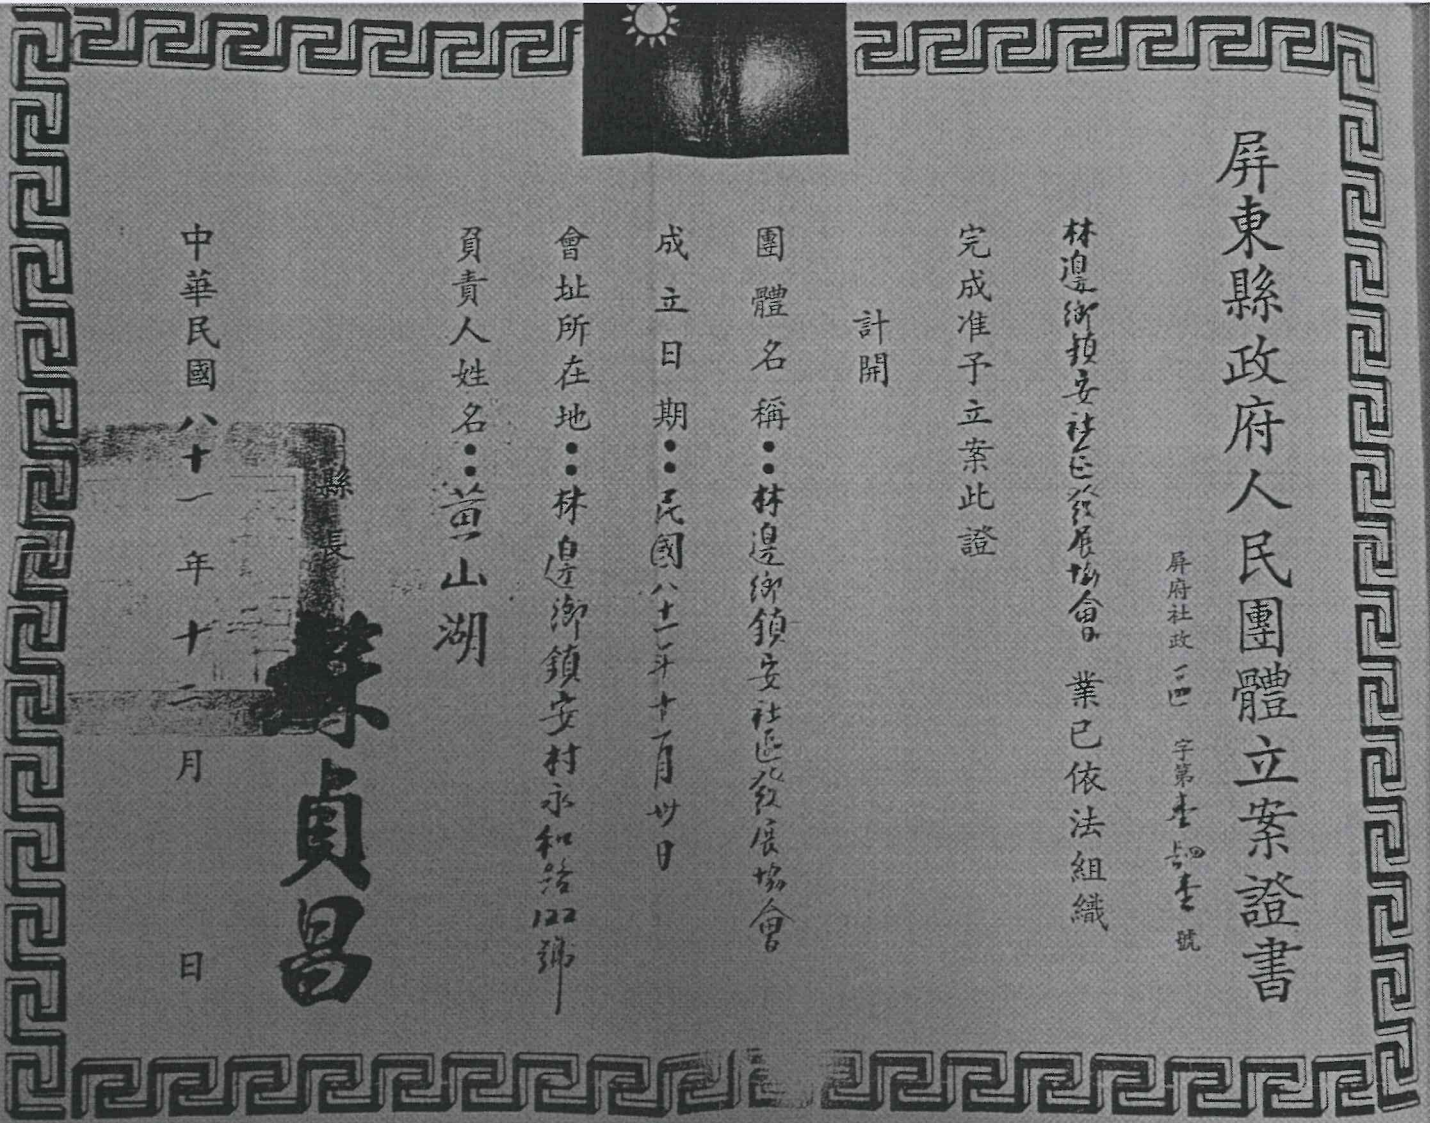 屏東縣政府人民團體立案證書
屏府社政 字第壹 壹號
林邊鄉鎮安社區發展協會 業已依法組織
完成准予立案此證
計開
團體名稱：林邊鄉鎮安社區發展協會
成立日期：民國八十一年十一月卅日
會址所在地：林邊鄉鎮安村永和路122號
負責人姓名：黃山湖
縣長 蘇貞昌
中華民國八十一年十二月 日